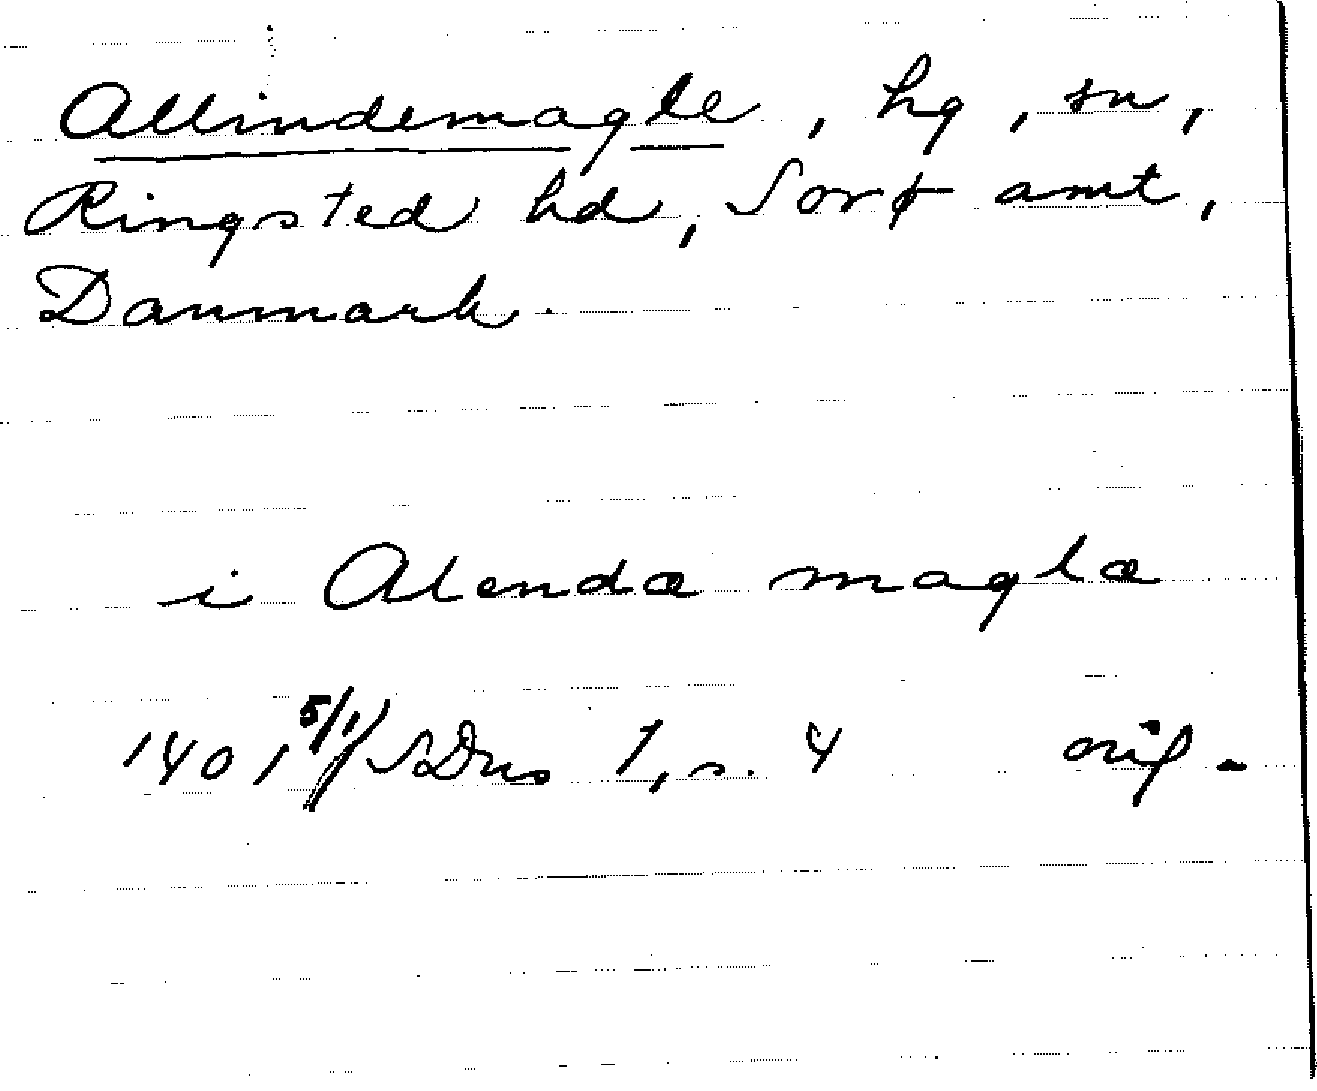 Allindemagle, hg, sn,
Ringsted hd, Sorø amt,
Danmark.
i Alendæ maglæ
1401 5/1 SDns 1, s. 4 orig.